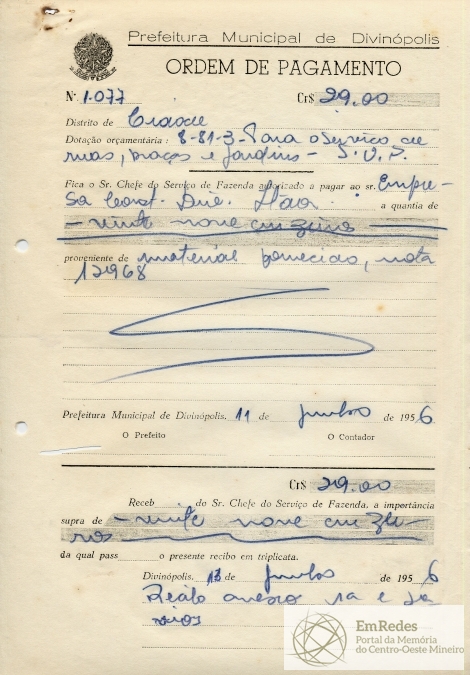 Prefeitura Municipal de Divinópolis
ORDEM DE PAGAMENTO
Nº 1.077 Cr$ 29.00
Distrito de Cidade
Dotação orçamentária: 8-81-3-Para o Serviço de
ruas, praças e jardins - S.V.P.
Fica o Sr. Chefe do Serviço de Fazenda autorizado a pagar ao sr. Empre-
sa Const. a quantia de
- vinte nove cruzeiros
proveniente de material fornecido, nota
12968
Prefeitura Municipal de Divinópolis, 11 de junho de 1956
O Prefeito O Contador
Cr$ 29.00
Receb do Sr. Chefe do Serviço de Fazenda, a importância
supra de - vinte nove cruzei-
ros
da qual pass o presente recibo em triplicata.
Divinópolis, 13 de junho de 1956
Recibo anexo
EmRedes
Portal da Memória
do Centro-Oeste Mineiro